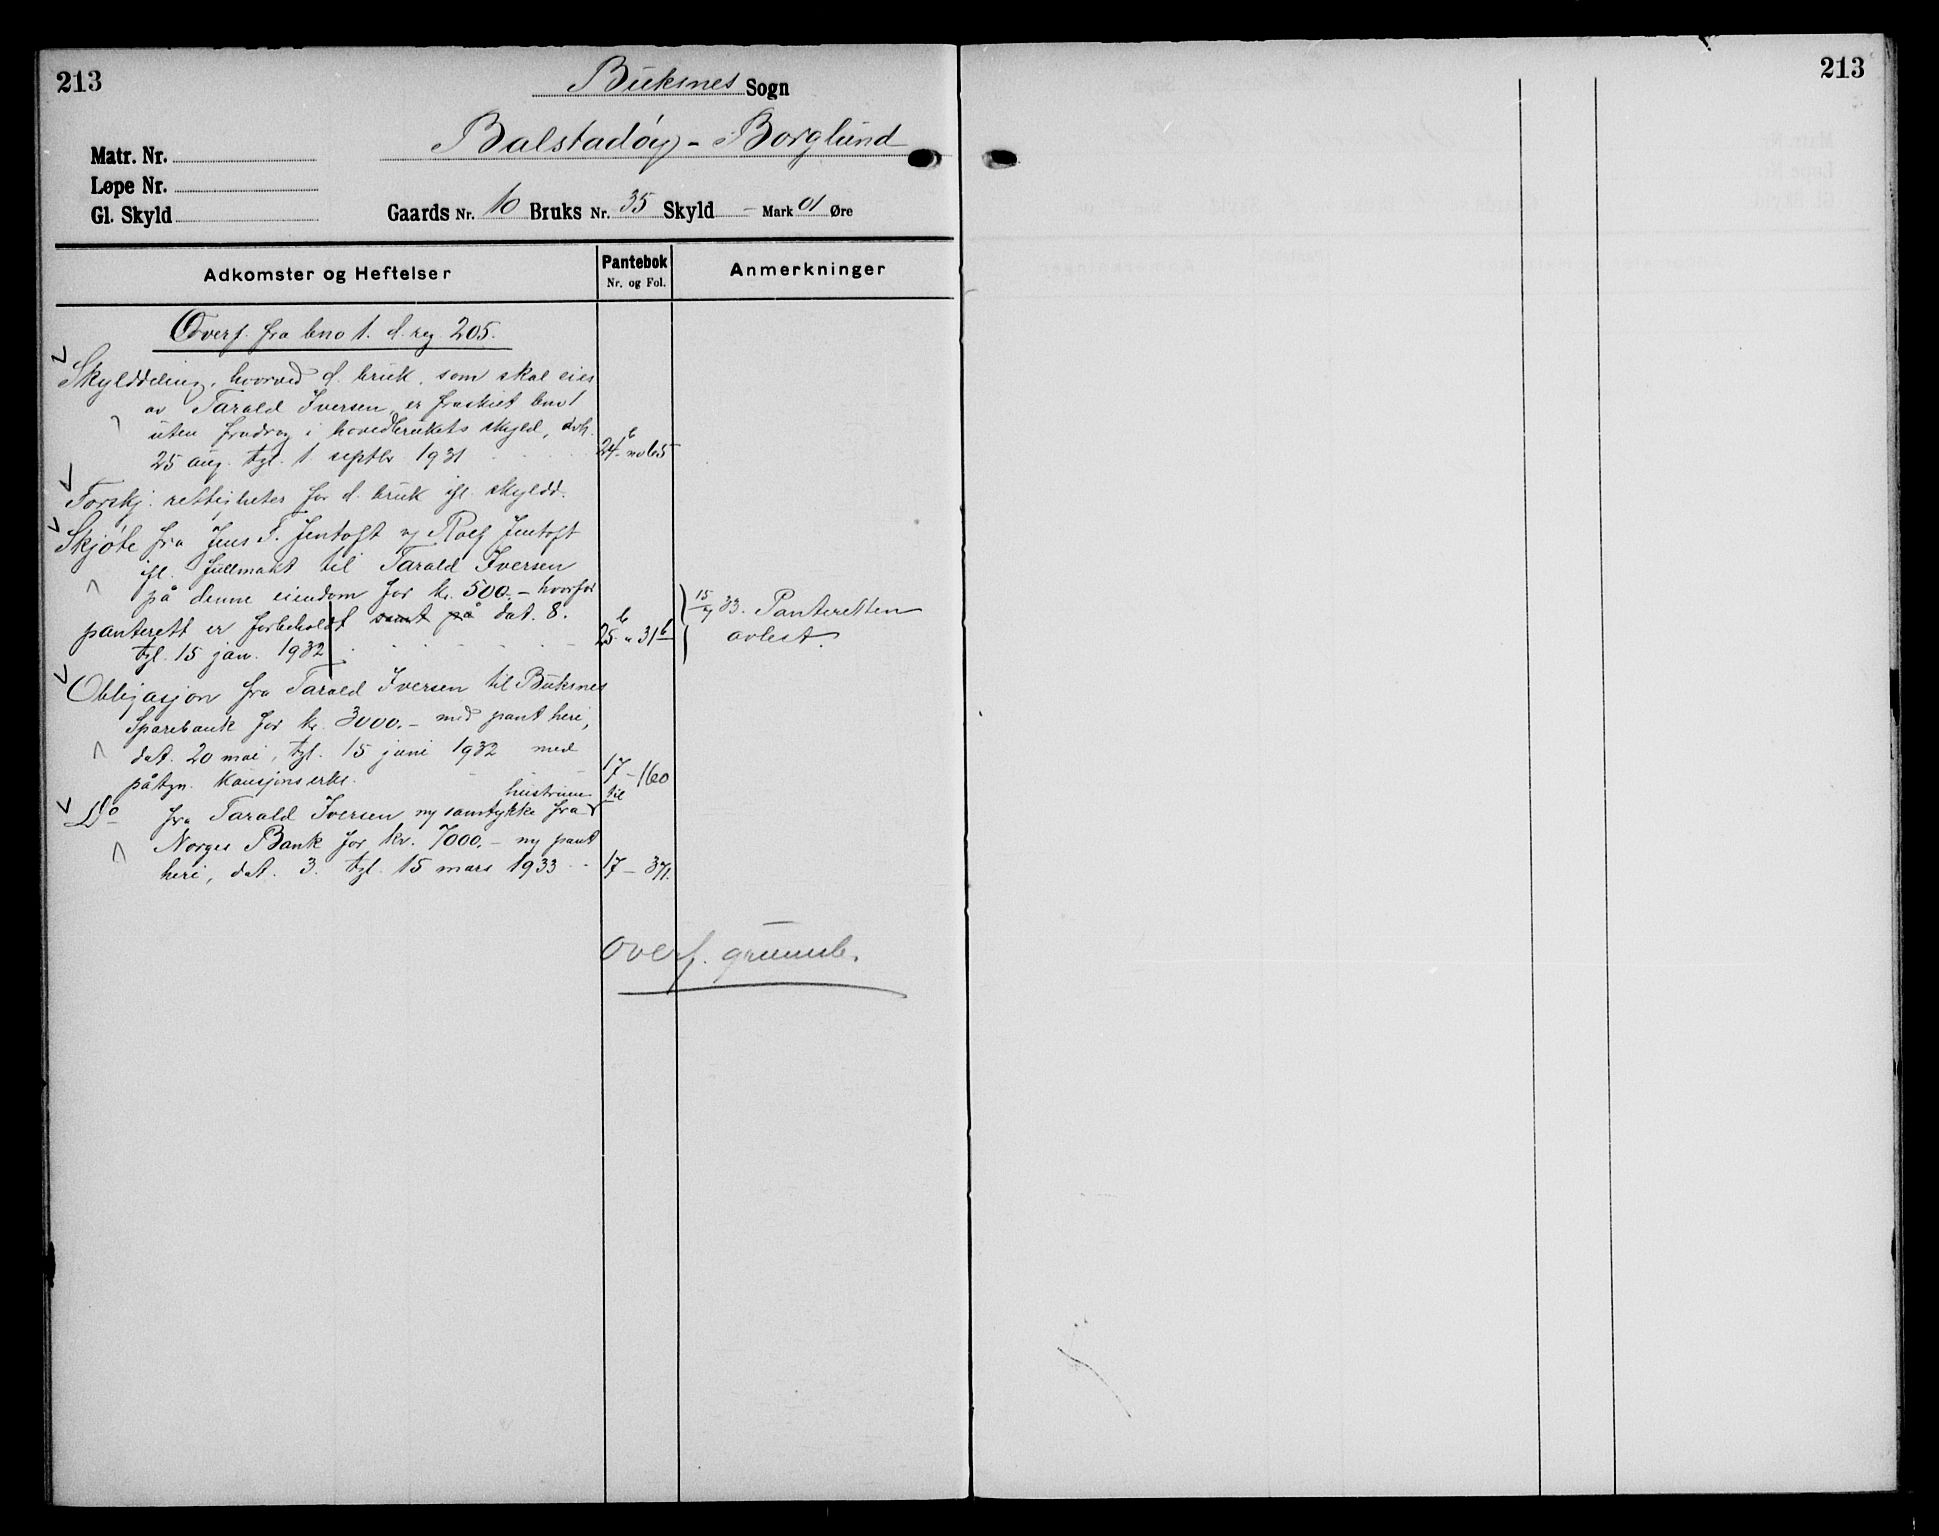 213
Buksnes Sogn
Balstadøy - Borglund
Matr. Nr.
Løpe Nr.
Gl. Skyld
Gaards Nr. 10 Bruks Nr. 35 Skyld - Mark 01 Øre
Adkomster og Heftelser
Pantebok
Nr. og Fol.
Anmerkninger
Overf. fra bno 1. d. reg 205.
Skylddeling, hvorved d. bruk, som skal eies
av Tarald Iversen, er fraskilt bno 1
uten fradrag i hovedbrukets skyld, avh.
25 aug. tgl. 1 septbr 1931 24b no 65
Forskj. rettigheter for d. bruk ifl. skyldd.
Skjøte fra Jens F. Jentoft v/ Rolf Jentoft
ifl. fullmakt til Tarald Iversen
på denne eiendom for kr. 500.- hvorfor
panterett er forbeholdt samt på dat. 8.
tgl. 15 jan. 1932 25b " 31b
15/7 33. Panteretten
avlest.
Obligasjon fra Tarald Iversen til Buksnes
Sparebank for kr. 3000.- med pant heri,
dat. 20 mai, tgl. 15 juni 1932 med
påtgn. kausjonserkl. 17 - 160
Do fra Tarald Iversen m/ samtykke fra hustruen til
Norges Bank for kr. 7000.- m/ pant
heri, dat. 3. tgl. 15 mars 1933 17 - 371.
Overf. grunnb.
213